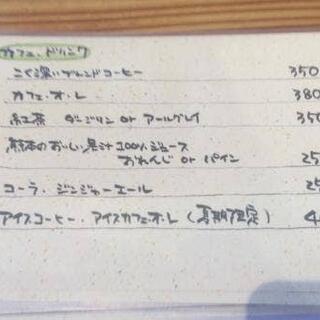 カフェ・ドリンク
こく深いブレンドコーヒー 350
カフェ・オ・レ 380
紅茶 ダージリン or アールグレイ 350
熊本のおいしい果汁100%ジュース
おれんじ or パイン 25
コーラ・ジンジャーエール 25
アイスコーヒー・アイスカフェ・オ・レ (夏期限定) 4